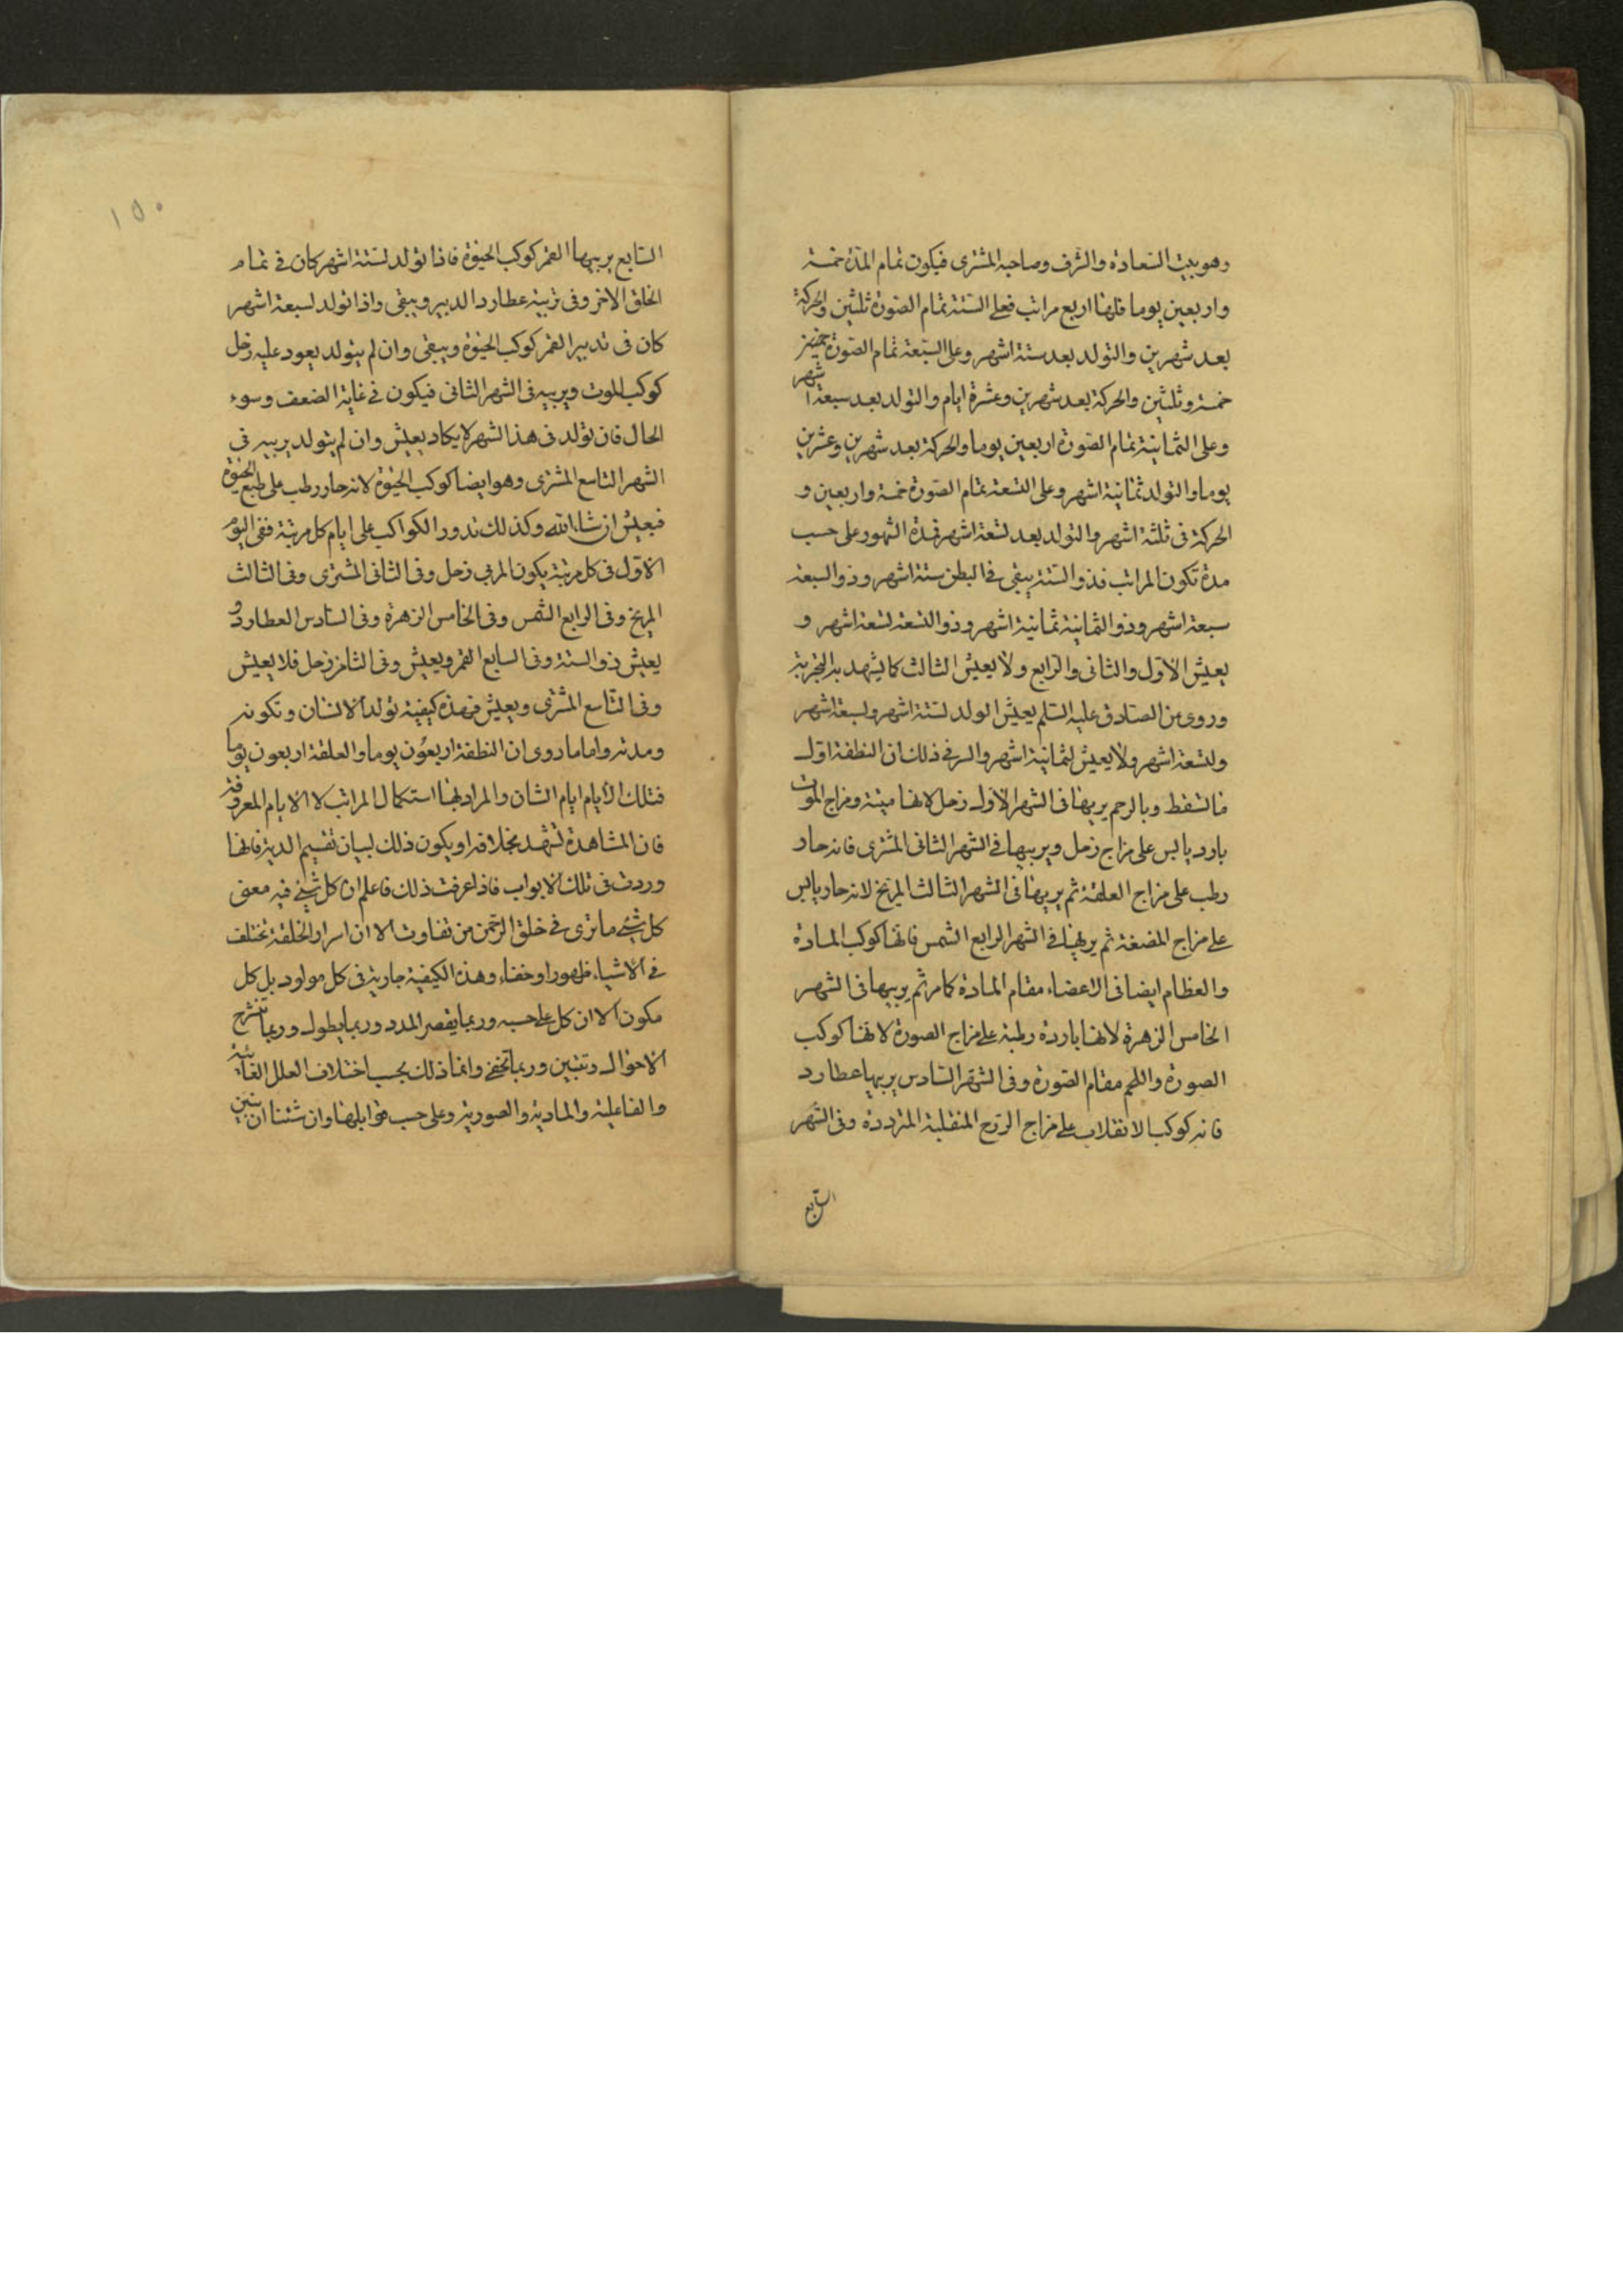 وهو بيت السعادة والشرف وصاحبه المشتری فيكون تمام المدة خمسة
واربعين يوما فلها اربع مراتب فعلی الستة تمام الصورة ثلثين والحركة
بعد شهرين والتولد بعد ستة اشهر وعلی السبعة تمام الصورة
خمسة وثلثين والحركة بعد شهرين وعشرة ايام والتولد بعد سبعة اشهر
وعلی الثمانية تمام الصورة اربعين يوما والحركة بعد شهرين وعشرين
يوما والتولد ثمانية اشهر وعلی التسعة تمام الصورة خمسة واربعين و
الحركة فی ثلثة اشهر والتولد بعد تسعة اشهر فمدة الشهور علی حسب
مدة تكون المراتب فذو الستة يبقی فی البطن ستة اشهر وذو السبعة
سبعة اشهر وذو الثمانية ثمانية اشهر وذو التسعة تسعة اشهر و
يعيش الاول والثانی والرابع ولا يعيش الثالث كما يشهد به التجربة
وروی عن الصادق عليه السلم يعيش الولد لستة اشهر ولسبعة اشهر
ولتسعة اشهر ولا يعيش لثمانية اشهر والسر فی ذلك ان النطفة اول
ما تسقط وبالرحم يربيها فی الشهر الاول زحل لانها ميتة ومزاج الموت
بارد يابس علی مزاج زحل ويربيها فی الشهر الثانی المشتری فانه حار
رطب علی مزاج العلقة ثم يربيها فی الشهر الثالث المريخ لانه حار يابس
علی مزاج المضغة ثم يربيها فی الشهر الرابع الشمس فانها كوكب المادة
والعظام ايضا فی الاعضاء مقام المادة كما مر ثم يربيها فی الشهر
الخامس الزهرة لانها باردة رطبة علی مزاج الصورة لانها كوكب
الصورة واللحم مقام الصورة وفی الشهر السادس يربيها عطارد
فانه كوكب الانقلاب علی مزاج الروح المنقلبة المترددة وفی الشهر
السابع
١٥٠
السابع يربيها القمر كوكب الحيوة فاذا تولد لستة اشهر كان فی تمام
الخلق الاخر وفی تربية عطارد الدبير ويبقی واذا تولد لسبعة اشهر
كان فی تدبير القمر كوكب الحيوة ويبقی وان لم يتولد يعود عليه زحل
كوكب الموت ويربيه فی الشهر الثانی فيكون فی غاية الضعف وسوء
الحال فان تولد فی هذا الشهر لا يكاد يعيش وان لم يتولد يربيه فی
الشهر التاسع المشتری وهو ايضا كوكب الحيوة لانه حار رطب علی طبع الحيوة
فيعيش ان شاء الله وكذلك تدور الكواكب علی ايام كل مرتبة ففی اليوم
الاول فی كل مرتبة يكون المربی زحل وفی الثانی المشتری وفی الثالث
المريخ وفی الرابع الشمس وفی الخامس الزهرة وفی السادس العطارد و
يعيش ذو الستة وفی السابع القمر ويعيش وفی الثامن زحل فلا يعيش
وفی التاسع المشتری ويعيش فهذه كيفية تولد الانسان وتكونه
ومدته واما ما روی ان النطفة اربعون يوما والعلقة اربعون يوما
فتلك الايام ايام الشان والمراد بها استكمال المراتب لا الايام المعروفة
فان المشاهدة تشهد بخلافه او يكون ذلك لبيان تقسيم الدية فانها
وردت فی تلك الابواب فاذا عرفت ذلك فاعلم ان كل شیء فيه معنی
كل شیء ما تری فی خلق الرحمن من تفاوت الا ان اسرار الخلقة تختلف
فی الاشياء ظهورا وخفاء وهذه الكيفية جارية فی كل مولود بل كل
مكون الا ان كل علی حسبه وربما يقصر المدد وربما يطول وربما تنشرح
الاحوال وتتبين وربما تخفی وانما ذلك بحسب اختلاف العلل الغائية
والفاعلية والمادية والصورية وعلی حسب قوابلها وان شئنا ان نبين